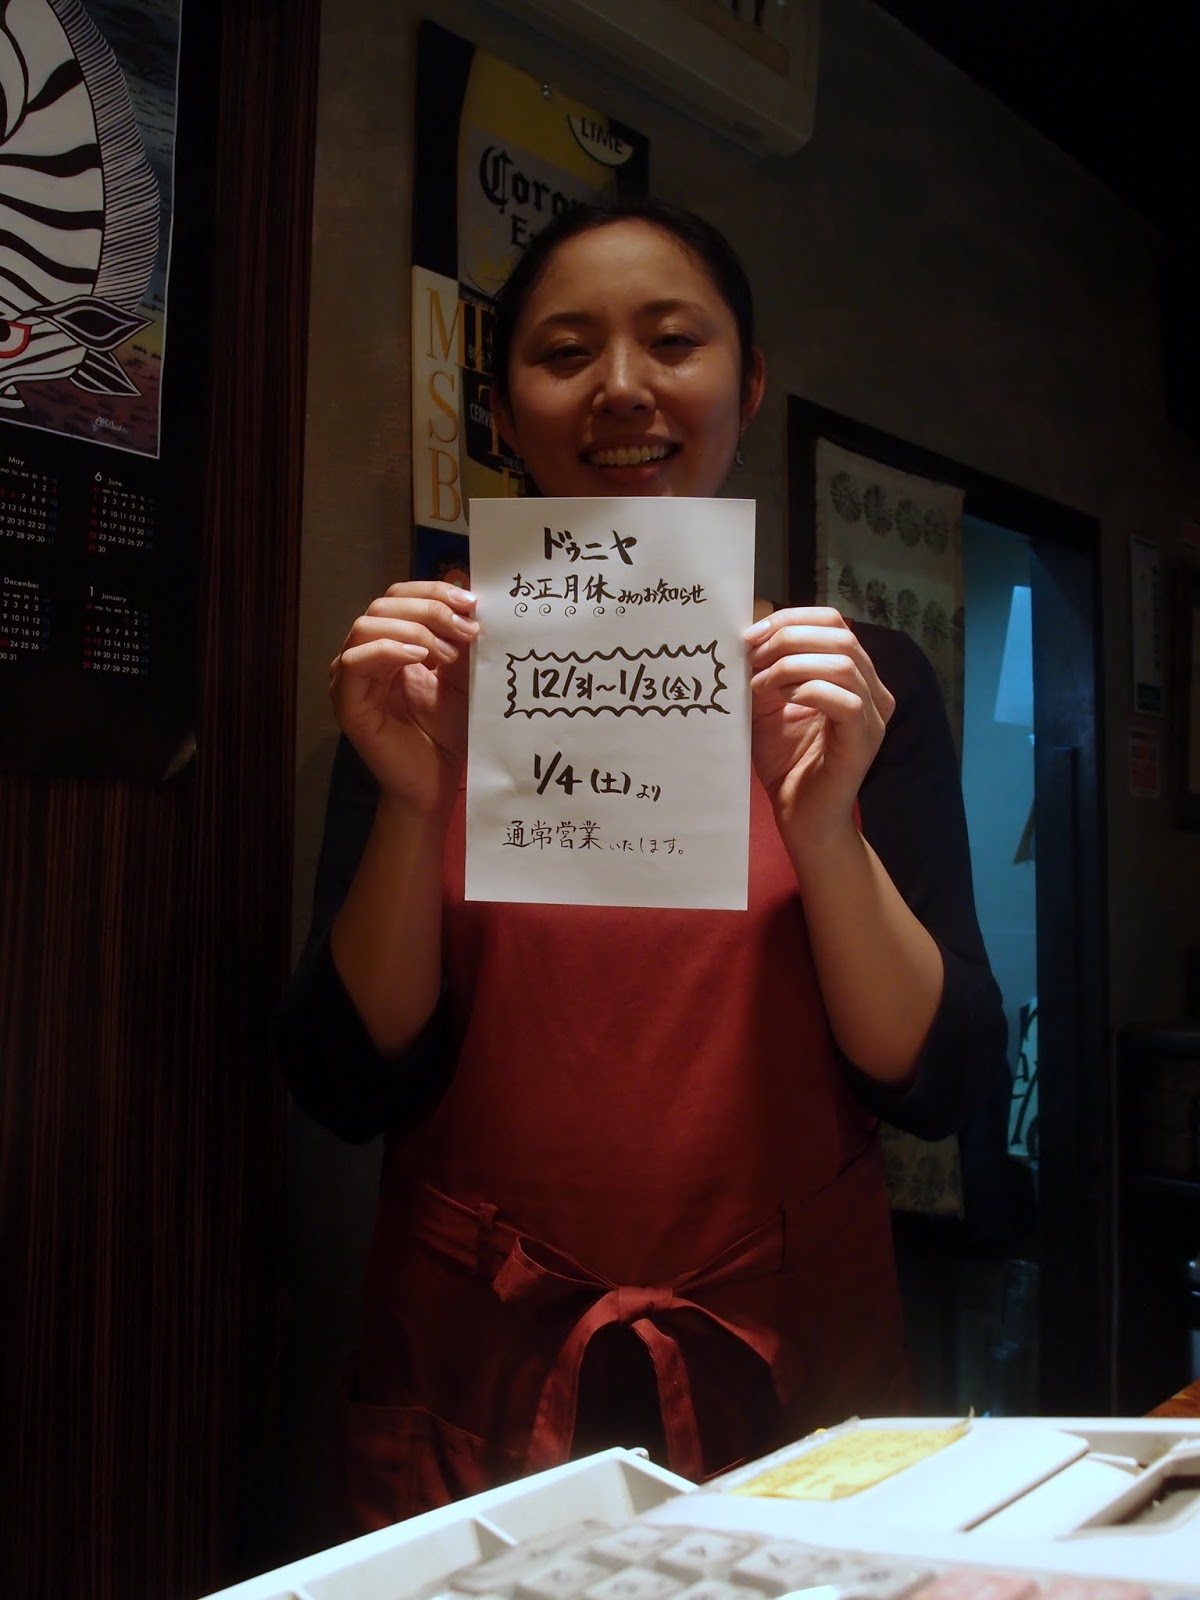 LIME
Coron
ドゥニヤ
お正月休みのお知らせ
12/31〜1/3(金)
1/4(土)より
通常営業いたします。
May
6 June
December
1 January